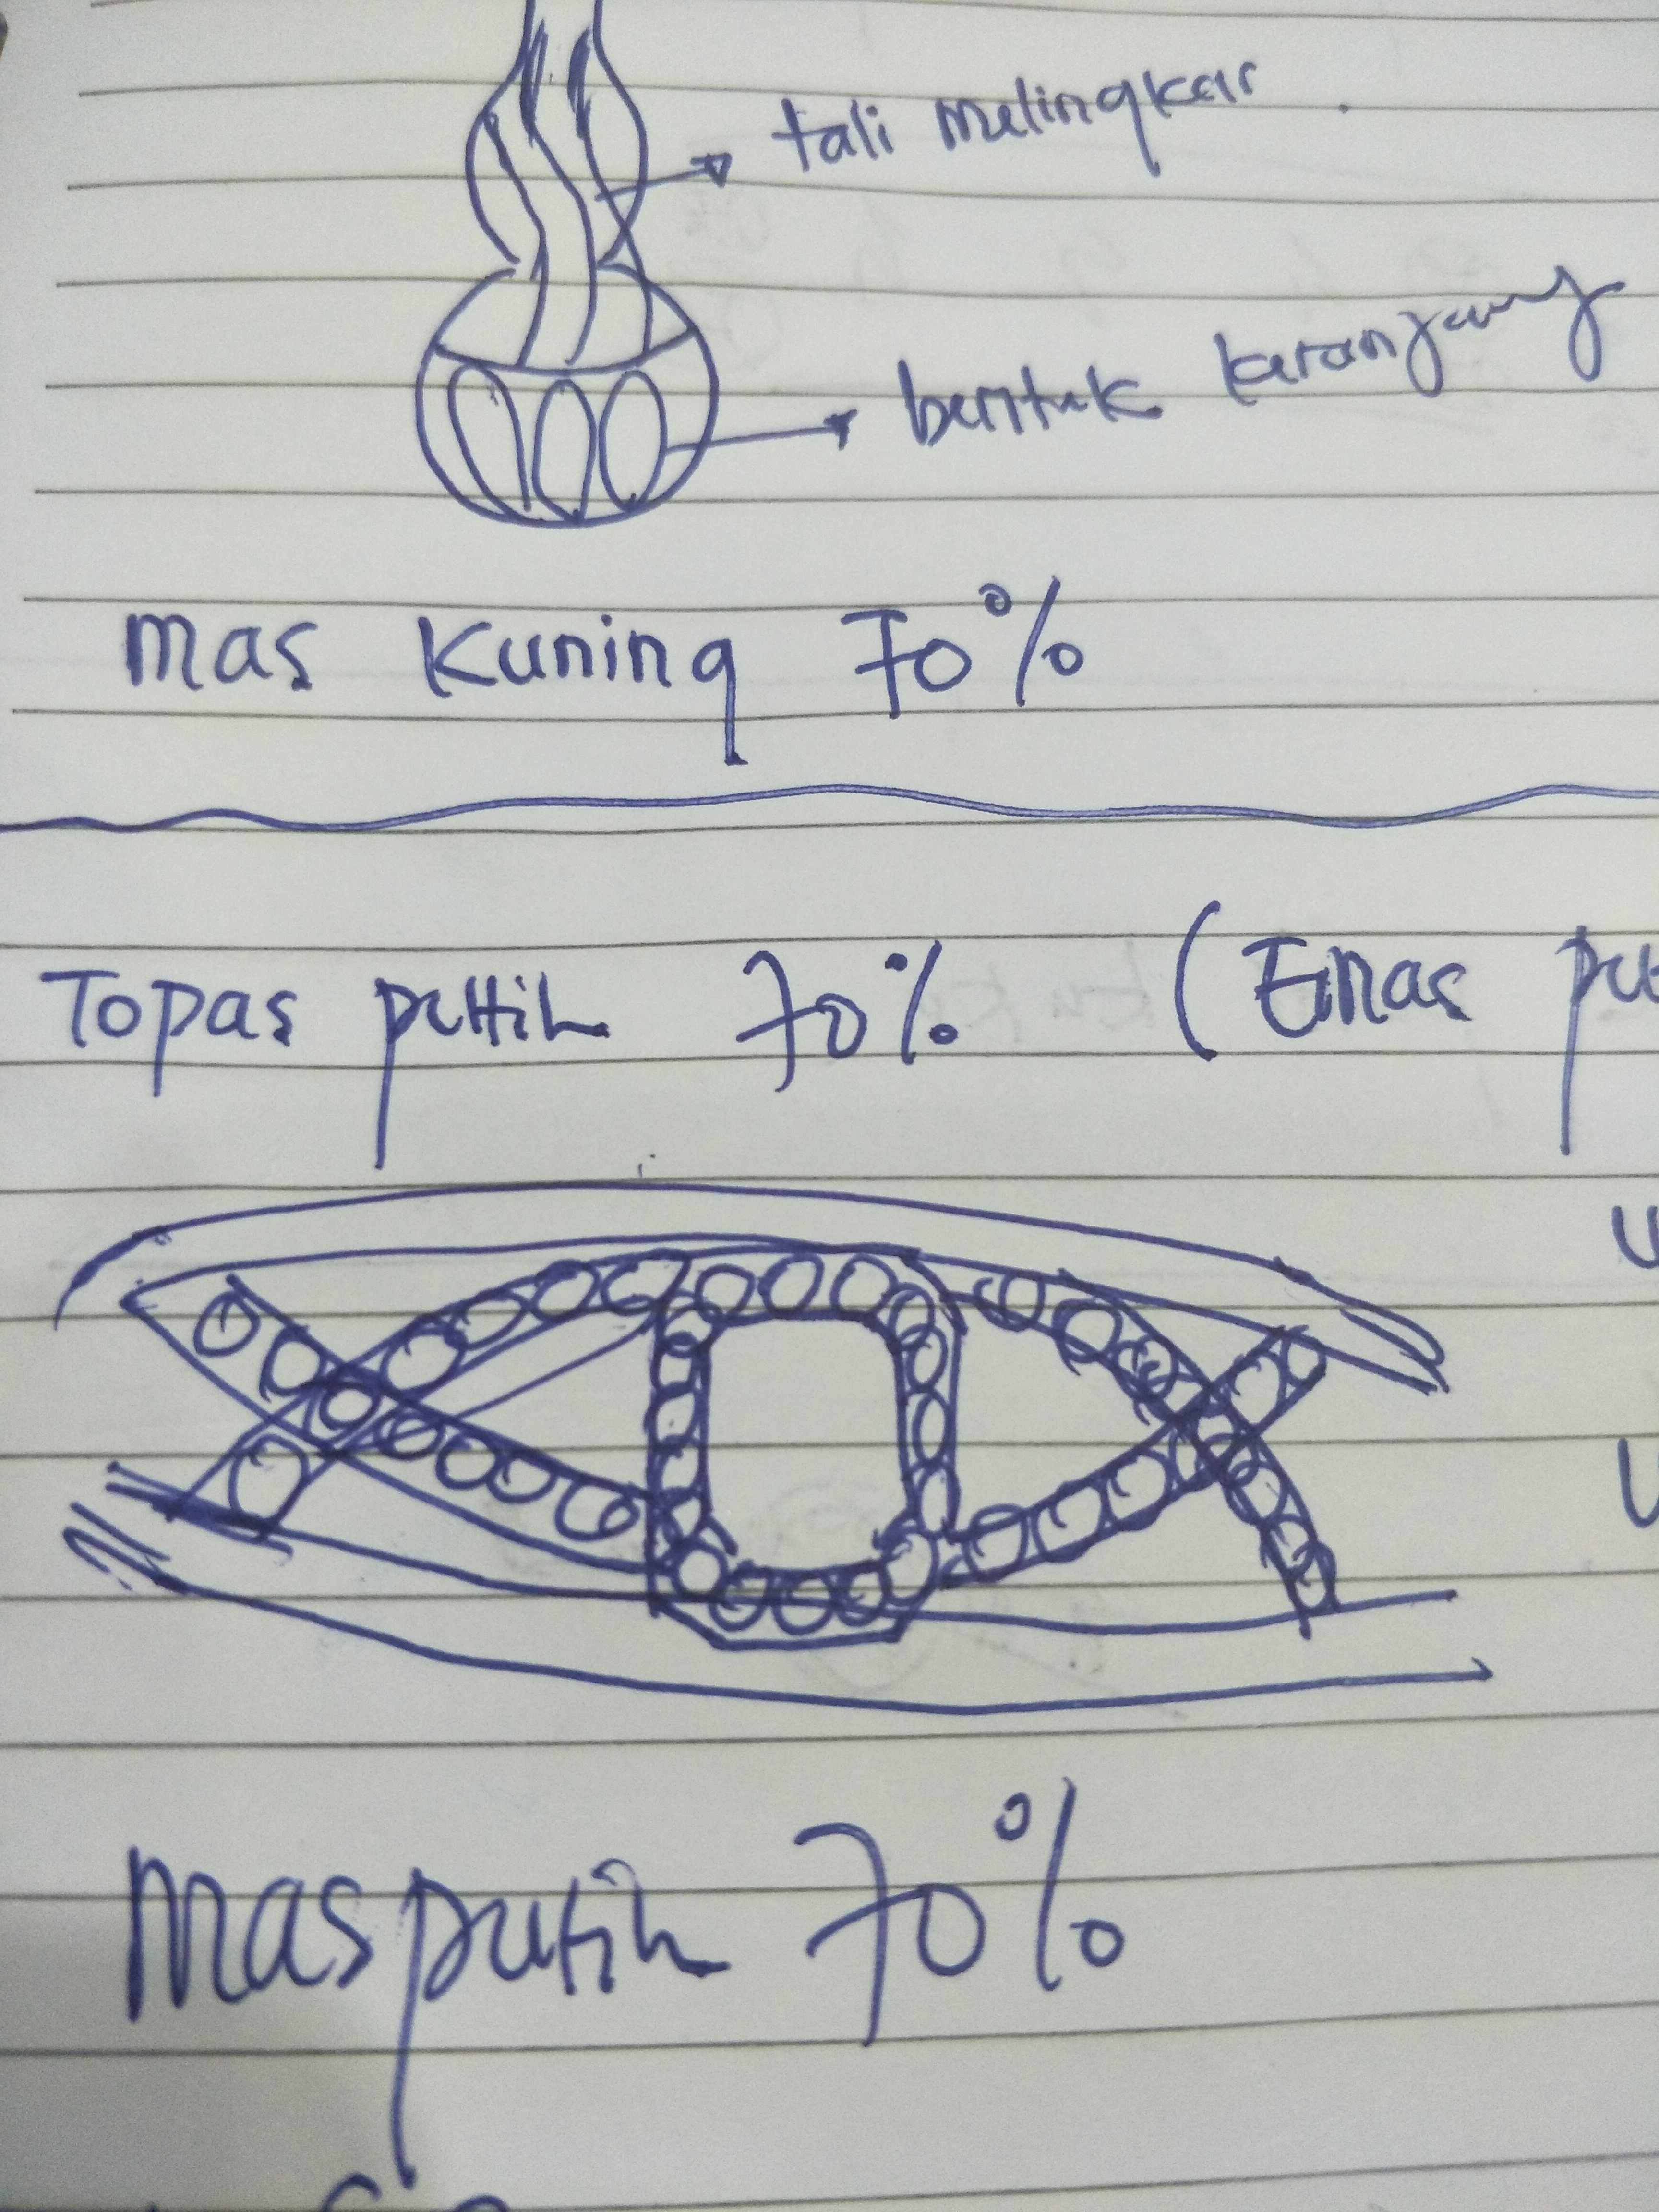 tali melingkar
bentuk keranjang
mas kuning 70%
Topas putih 70% (Emas
mas putih 70%